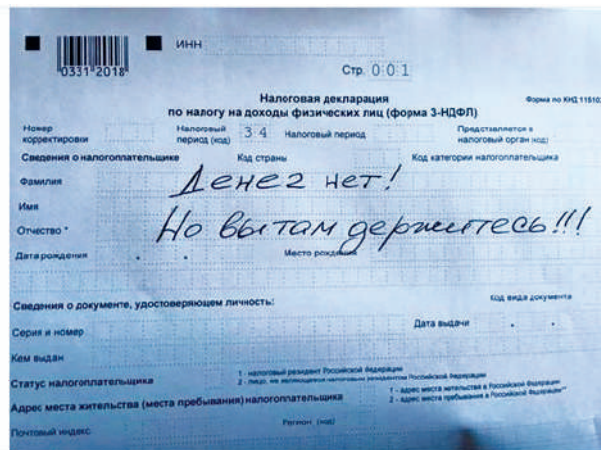 ИНН
0331 2018
Стр. 001
Налоговая декларация
по налогу на доходы физических лиц (форма 3-НДФЛ)
Форма по КНД 115102
Номер корректировки
Налоговый период (код) 34
Налоговый период
Представляется в налоговый орган (код)
Сведения о налогоплательщике
Код страны
Код категории налогоплательщика
Фамилия
Денег нет!
Имя
Но вы там держитесь!!!
Отчество *
Дата рождения
Место рождения
Сведения о документе, удостоверяющем личность:
Код вида документа
Серия и номер
Дата выдачи
Кем выдан
Статус налогоплательщика
1 - налоговый резидент Российской Федерации
2 - лицо, не являющееся налоговым резидентом Российской Федерации
Адрес места жительства (места пребывания) налогоплательщика
1 - адрес места жительства в Российской Федерации
2 - адрес места пребывания в Российской Федерации**
Почтовый индекс
Регион (код)